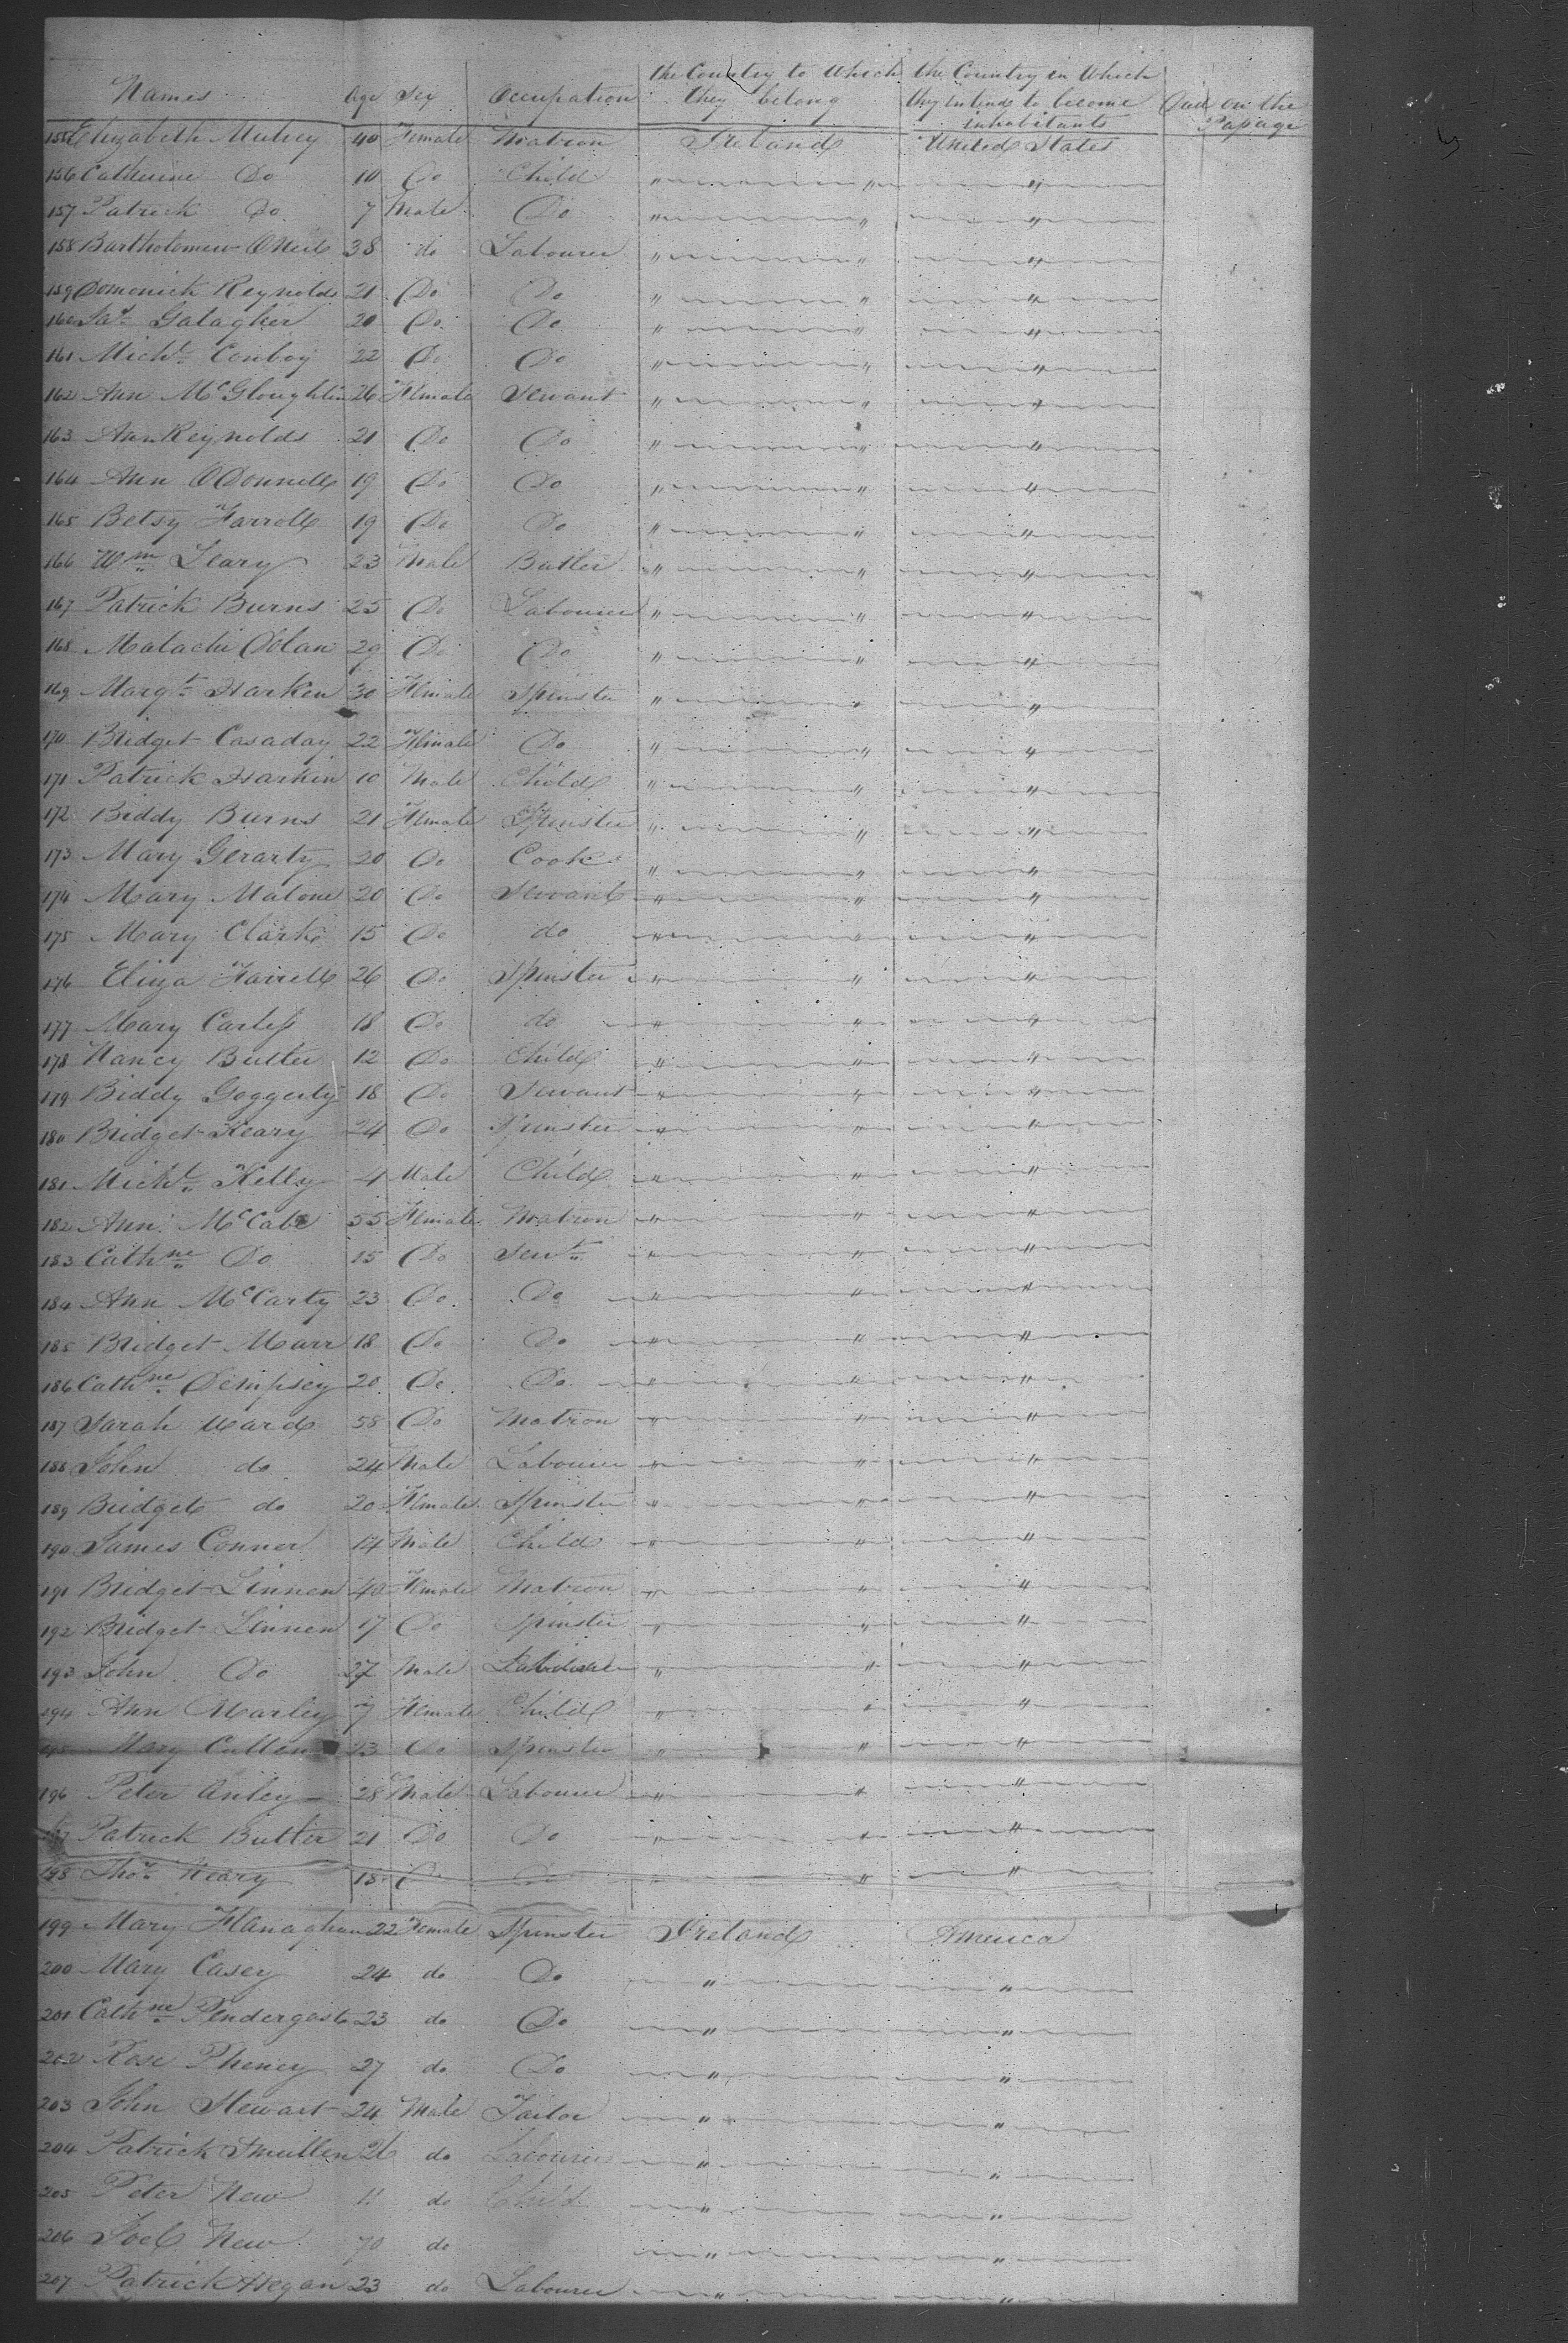 Names Age Sex Occupation the Country to Which they belong the Country in Which they intend to become inhabitants Died on the Passage
155 Elizabeth Mulvey 40 Female Matron Ireland United States
156 Catherine Do 10 Do Child " " "
157 Patrick Do 7 Male Do " " "
158 Bartholomew ONeil 38 do Labourer " " "
159 Domonick Reynolds 21 Do Do " " "
160 Jas Galagher 20 Do Do " " "
161 Michl Conboy 22 Do Do " " "
162 Ann McGloughlin 26 Female Servant " " "
163 Ann Reynolds 21 Do Do " " "
164 Ann ODonnell 19 Do Do " " "
165 Betsy Farroll 19 Do Do " " "
166 Wm Leary 23 Male Butler " " "
167 Patrick Burns 25 Do Labourer " " "
168 Malachi Dolan 29 Do Do " " "
169 Margt Harken 30 Female Spinster " " "
170 Bridget Casaday 22 Female Do " " "
171 Patrick Harkin 10 Male Child " " "
172 Biddy Burns 21 Female Spinster " " "
173 Mary Gerarty 20 Do Cook " " "
174 Mary Malone 20 Do Servant " " "
175 Mary Clark 15 Do do " " "
176 Eliza Farrell 26 Do Spinster " " "
177 Mary Carless 18 Do do " " "
178 Nancy Butler 12 Do Child " " "
179 Biddy Goggerty 18 Do Servant " " "
180 Bridget Keary 24 Do Spinster " " "
181 Michl Kelly 4 Male Child " " "
182 Ann McCabe 55 Female Matron " " "
183 Cathne Do 15 Do Servt " " "
184 Ann McCarty 23 Do Do " " "
185 Bridget Marr 18 Do Do " " "
186 Cathne Dempsey 20 Do Do " " "
187 Sarah Ward 58 Do Matron " " "
188 John do 24 Male Labourer " " "
189 Bridget do 20 Female Spinster " " "
190 James Connor 14 Male Child " " "
191 Bridget Linnen 40 Female Matron " " "
192 Bridget Linnen 17 Do Spinster " " "
193 John Do 27 Male Labourer " " "
194 Ann Marley 7 Female Child " " "
Mary Cullen 23 Do Spinster " " "
196 Peter Anley 28 Male Labourer " " "
197 Patrick Butler 21 Do Do " " "
198 Thos Neary 18 Do Do " " "
199 Mary Flanaghan 22 Female Spinster Ireland America
200 Mary Casey 24 do Do " "
201 Cathne Pendergast 23 do Do " "
202 Rose Pheney 27 do Do " "
203 John Stewart 24 Male Tailor " "
204 Patrick Smullen 26 do Labourer " "
205 Peter New 11 do Child " "
206 Joel New 70 do " "
207 Patrick Hegan 23 do Labourer " "